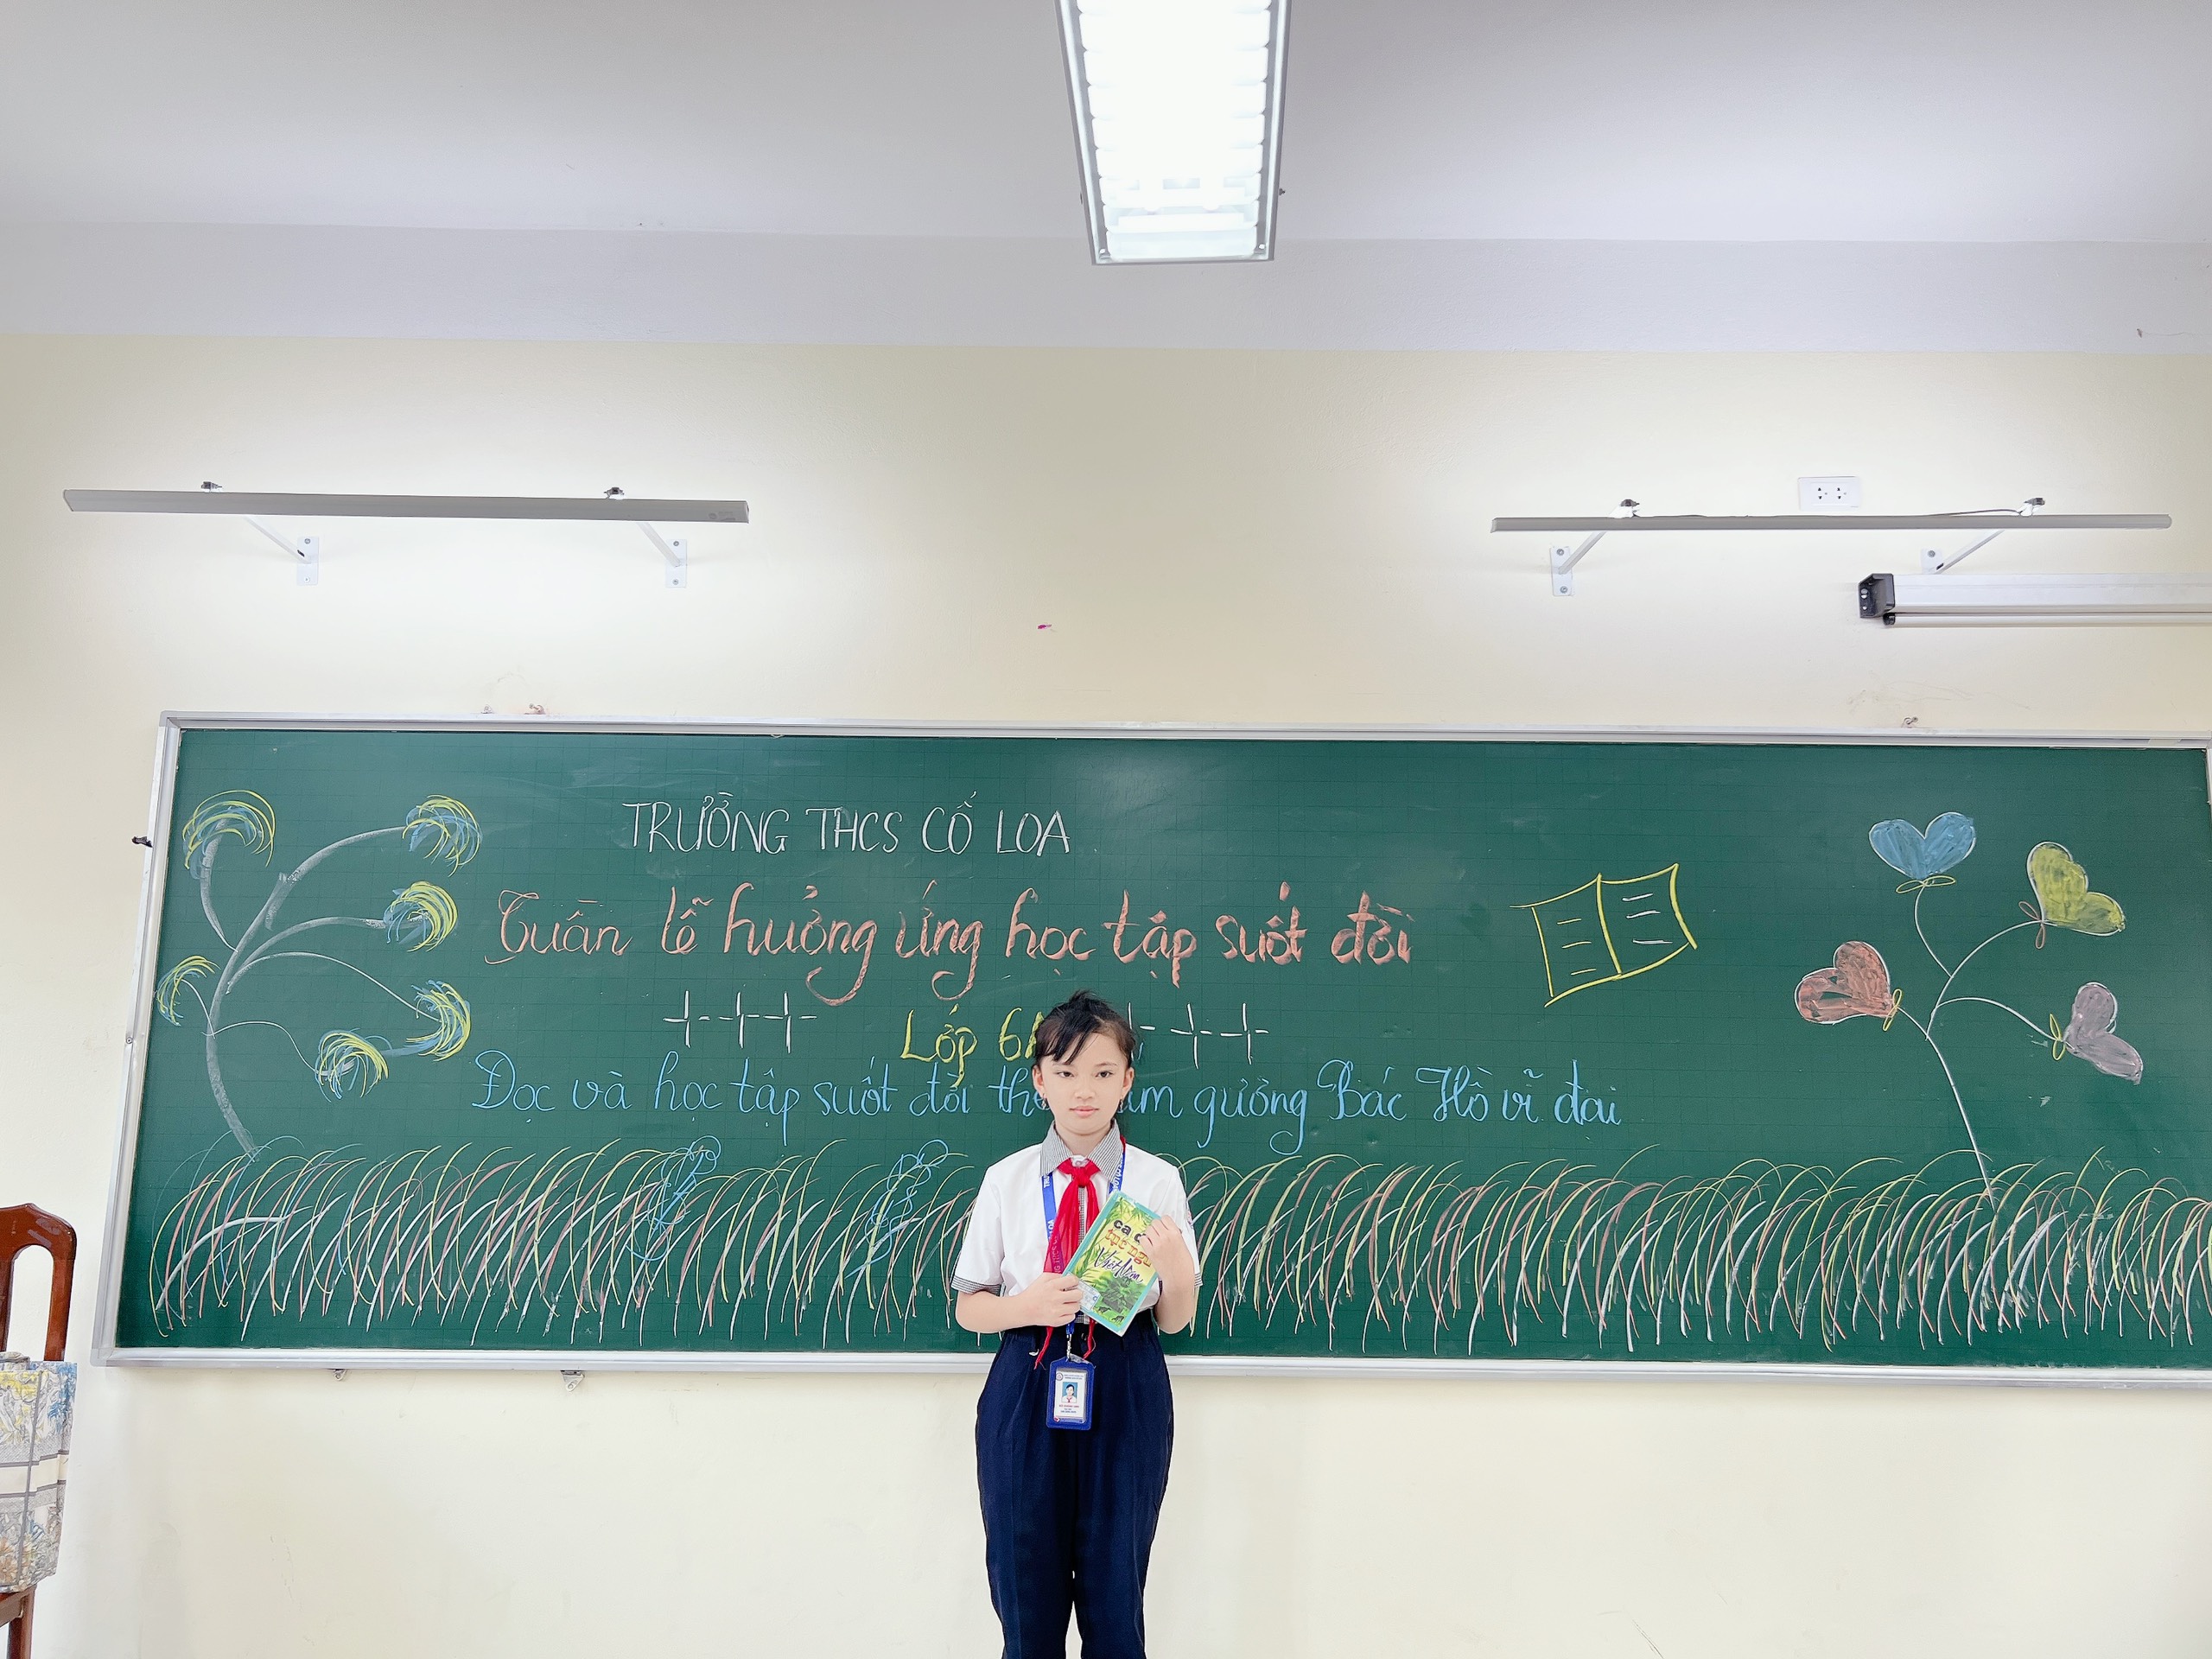 TRƯỜNG THCS CỔ LOA
Tuần lễ hưởng ứng học tập suốt đời
Lớp 6A
Đọc và học tập suốt đời gương Bác Hồ vĩ đại
ca
tục ngữ
Việt Nam